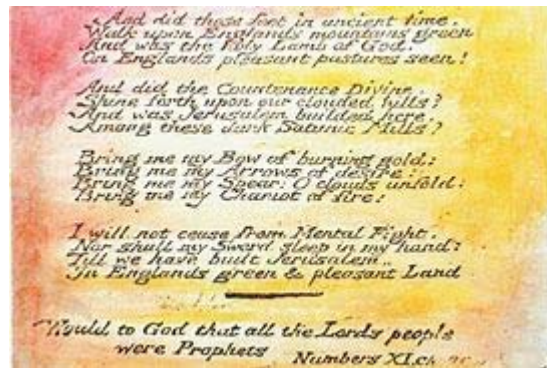 And did those feet in ancient time,
Walk upon Englands mountains green
And was the Holy Lamb of God,
On Englands pleasant pastures seen!
And did the Countenance Divine,
Shine forth upon our clouded hills?
And was Jerusalem builded here,
Among these dark Satanic Mills?
Bring me my Bow of burning gold:
Bring me my Arrows of desire:
Bring me my Spear: O clouds unfold:
Bring me my Chariot of fire:
I will not cease from Mental Fight,
Nor shall my Sword sleep in my hand:
Till we have built Jerusalem,
In Englands green & pleasant Land
Would to God that all the Lords people
were Prophets Numbers XI.ch